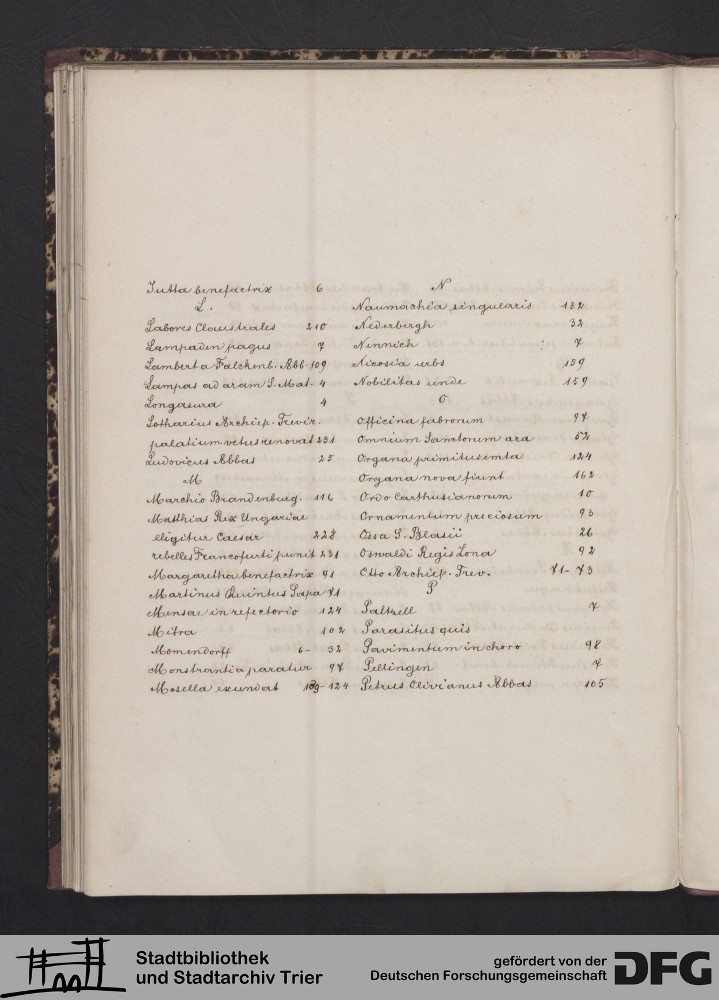 Jutta benefactrix 6
L.
Labores Claustrales 210
Lampaden pagus 7
Lambert a Falckenb. Abb. 109
Lampas ad aram S. Mat. 4
Longasura 4
Lotharius Archiep. Trevir.
palatium vetus renovat 231
Ludovicus Abbas 25
M
Marchio Brandenburg. 116
Matthias Rex Ungariae
eligitur Caesar 228
rebelles Francofurti punit 231
Margaretha benefactrix 91
Martinus Quintus Papa 71
Mensae in refectorio 124
Mitra 102
Momendorff 6- 32
Monstrantia paratur 97
Mosella exundat 109-124
N
Naumachia singularis 132
Nederbergh 32
Nennich 7
Nicosia urbs 159
Nobilitas unde 159
O
Officina fabrorum 97
Omnium Sanctorum ara 52
Organa primitus emta 124
Organa nova fiunt 162
Ordo Carthusianorum 10
Ornamentum preciosum 93
Ossa S. Blasii 26
Oswaldi Regis Zona 92
Otto Archiep. Trev. 71-73
P
Paltzell 7
Parasitus quis
Pavimentum in choro 98
Pellingen 7
Petrus Olivianus Abbas 105
Stadtbibliothek
und Stadtarchiv Trier
gefördert von der
Deutschen Forschungsgemeinschaft
DFG